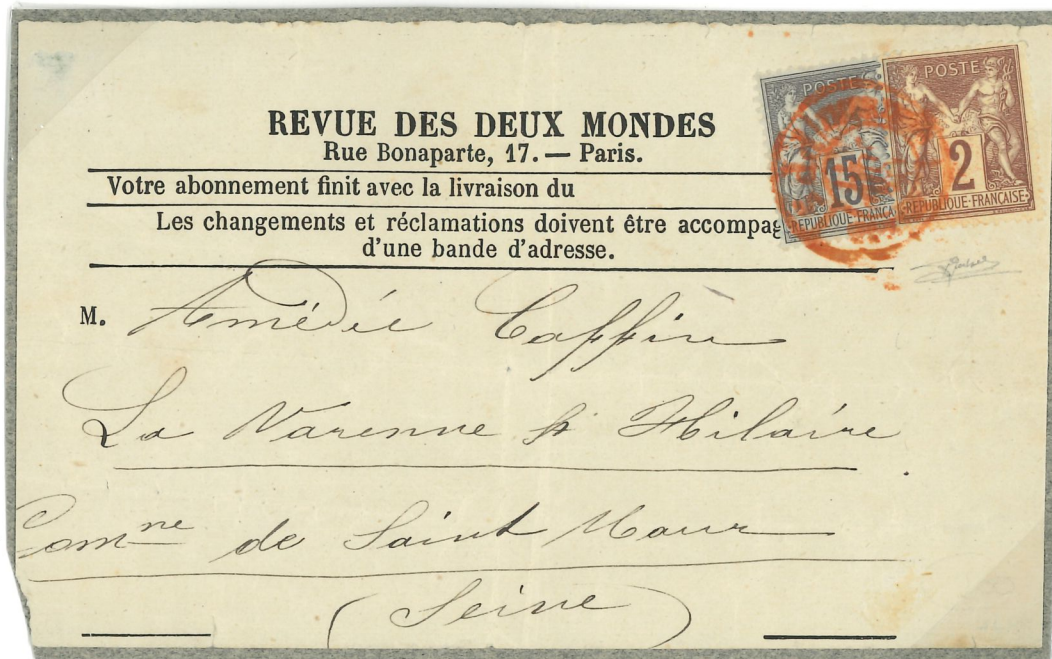 REVUE DES DEUX MONDES
Rue Bonaparte, 17. — Paris.
Votre abonnement finit avec la livraison du
Les changements et réclamations doivent être accompag
d'une bande d'adresse.
POSTE
15
REPUBLIQUE FRANCA
POSTE
2
REPUBLIQUE FRANÇAISE
M. Amédée Caffin
La Varenne St Hilaire
Comne de Saint Maur
(Seine)